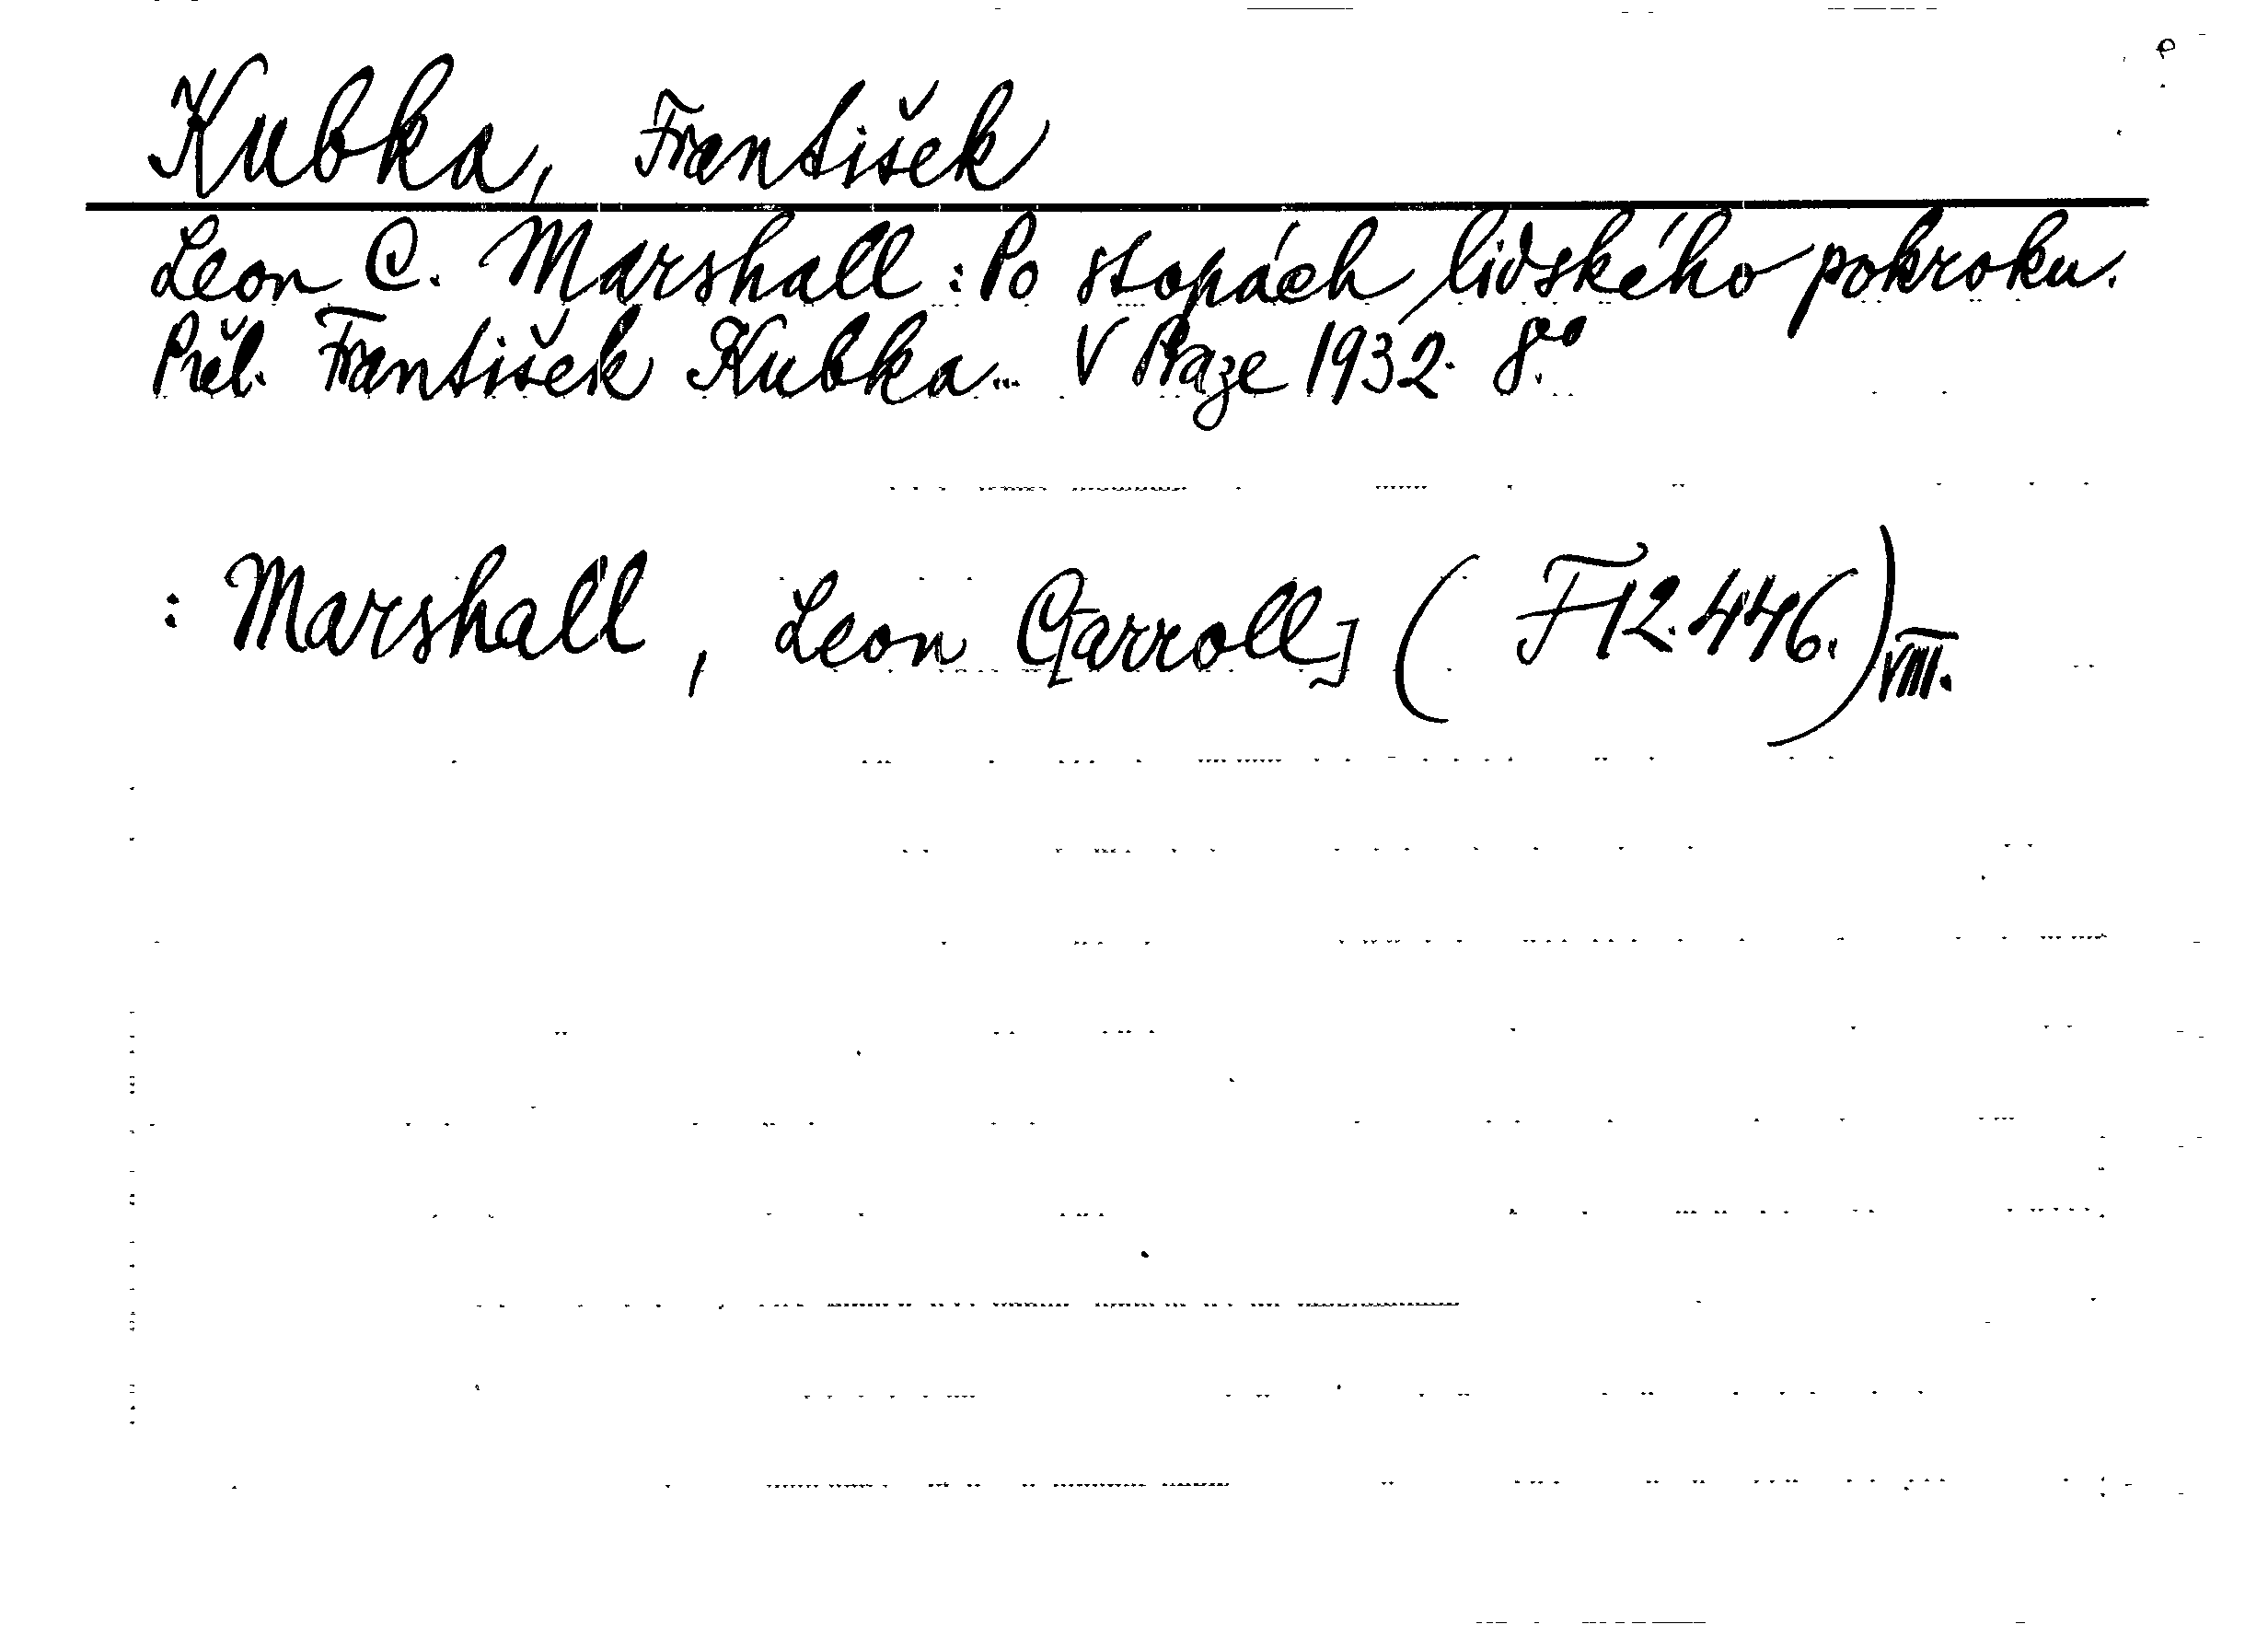 Kubka, František
Leon C. Marshall: Po stopách lidského pokroku.
Přel. František Kubka... V Praze 1932. 8°.
: Marshall, Leon C[arroll] (F 12.446.) VIII.